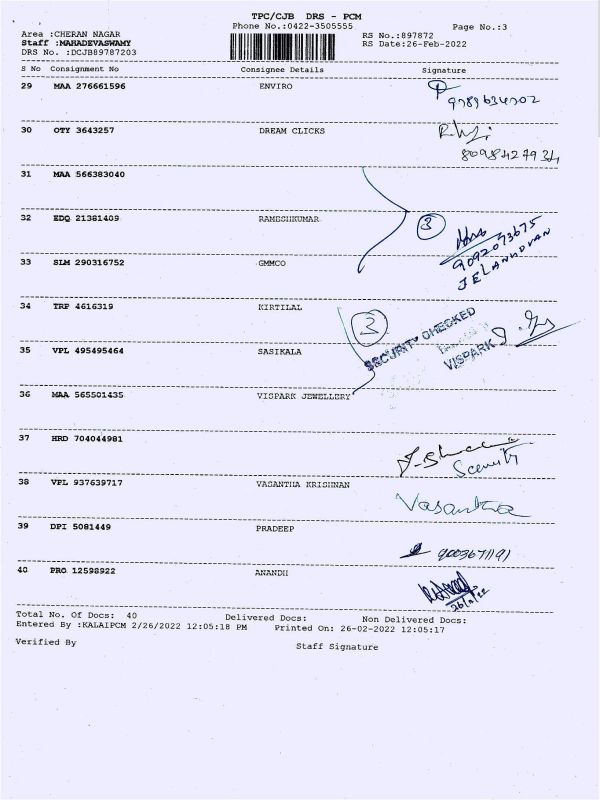 TPC/CJB DRS - PCM
Phone No.:0422-3505555
Page No.:3
Area :CHERAN NAGAR
RS No.:897872
Staff :MAHADEVASWAMY
RS Date:26-Feb-2022
DRS No. :DCJB89787203
S No Consignment No Consignee Details Signature
29 MAA 276661596 ENVIRO
9789634202
30 OTY 3643257 DREAM CLICKS
8098427934
31 MAA 566383040
32 EDQ 21381409 RAMESHKUMAR 3
9092073675
33 SLM 290316752 GMMCO
34 TRP 4616319 KIRTILAL 3
SECURITY CHECKED
VISPARK
35 VPL 495495464 SASIKALA
36 MAA 565501435 VISPARK JEWELLERY
37 HRD 704044981
38 VPL 937639717 VASANTHA KRISHNAN
Vasantha
39 DPI 5081449 PRADEEP
9003671191
40 PRO 12598922 ANANDH
Total No. Of Docs: 40 Delivered Docs: Non Delivered Docs:
Entered By :KALAIPCM 2/26/2022 12:05:18 PM Printed On: 26-02-2022 12:05:17
Verified By Staff Signature